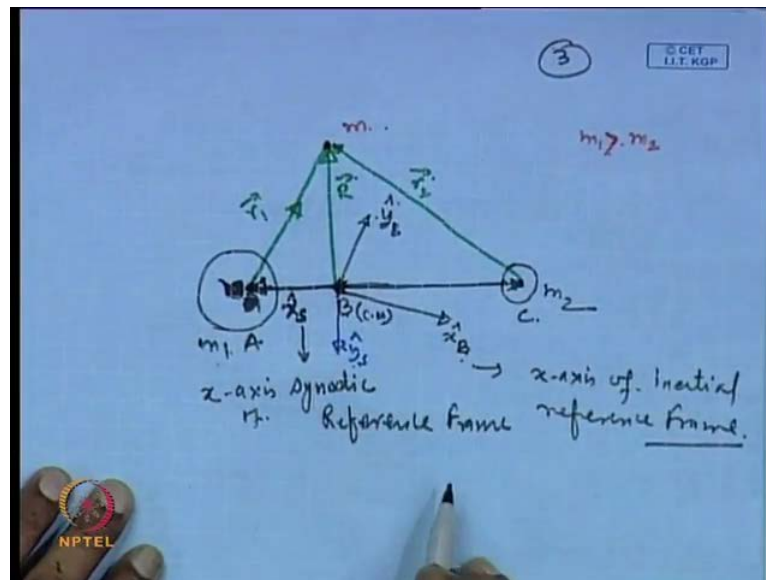 3
© CET
I.I.T. KGP
m
m₁ > m₂
r⃗₁
R⃗
r⃗₂
ŷ_B
m₂
x̂_s
B (C.M)
C.
m₁ A
ŷ_s
x̂_B
x-axis synodic
Reference Frame
x-axis of inertial
reference Frame.
NPTEL